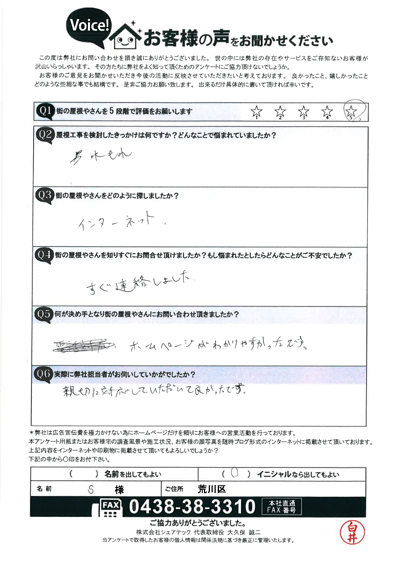 Voice!
お客様の声をお聞かせください
この度は弊社にお問い合わせを頂き誠にありがとうございました。世の中には弊社の存在やサービスをご存知ないお客様が
沢山いらっしゃいます。その方たちに弊社をよく知って頂くためのアンケートにご協力頂けないでしょうか。
お客様のご意見をお聞かせいただき今後の活動に反映させていただきたいと考えております。良かったこと、嬉しかったこと
どのような些細な事でも結構です。是非ご協力お願い致します。出来るだけ具体的に書いて頂ければ幸いです。
Q1 街の屋根やさんを5段階で評価をお願いします ☆ ☆ ☆ ☆ ☆
Q2 屋根工事を検討したきっかけは何ですか？どんなことで悩まれていましたか？
水もれ
Q3 街の屋根やさんをどのように探しましたか？
インターネット.
Q4 街の屋根やさんを知りすぐにお問合せ頂けましたか？もし悩まれたとしたらどんなことがご不安でしたか？
すぐ連絡しました
Q5 何が決め手となり街の屋根やさんにお問い合わせ頂きましたか？
ホームページがわかりやすかったです。
Q6 実際に弊社担当者がお伺いしていかがでしたか？
親切に対応していただいて良かったです。
＊弊社は広告宣伝費を極力かけない為にホームページだけを頼りにお客様への営業活動を行っております。
本アンケート用紙またはお客様宅の調査風景や施工状況、お客様の顔写真を随時ブログ形式のインターネットに掲載させて頂いております。
上記内容をインターネットや印刷物に掲載させて頂いてもよろしいでしょうか？
下記の中から〇印をお付下さい。
（　　）名前を出してもよい （ 〇 ）イニシャルなら出してもよい
名前 S 様 ご住所 荒川区
FAX 0438-38-3310 本社直通 FAX番号
ご協力ありがとうございました。
株式会社シェアテック 代表取締役 大久保 誠二
当アンケートで取得したお客様の個人情報は関係法規に基づき厳正に管理いたします。
白井